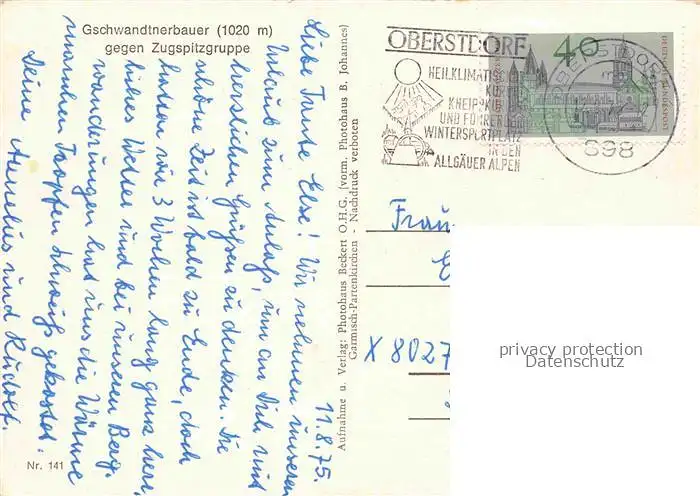 Gschwandtnerbauer (1020 m)
gegen Zugspitzgruppe
11.8.75.
Liebe Tante Else! Wir nehmen unseren
Urlaub zum Anlaß, um an Dich mit
herzlichen Grüßen zu denken. Die
schöne Zeit ist bald zu Ende, doch
hatten wir 3 Wochen lang ganz herr,
liches Wetter und bei unseren Berg,
wanderungen hat uns die Wärme
manchen Tropfen Schweiß gekostet.
Deine Annelies und Rudolf.
Nr. 141
Aufnahme u. Verlag: Photohaus Beckert O.H.G. (vorm. Photohaus B. Johannes)
Garmisch-Partenkirchen - Nachdruck verboten
OBERSTDORF
HEILKLIMATI
KNEIPPKU
UND FÜHRE
WINTERSPORTPLATZ
IN DEN
ALLGÄUER ALPEN
40
DEUTSCHE BUNDESPOST
OBERSTDORF
898
Frau
X 8027
privacy protection
Datenschutz